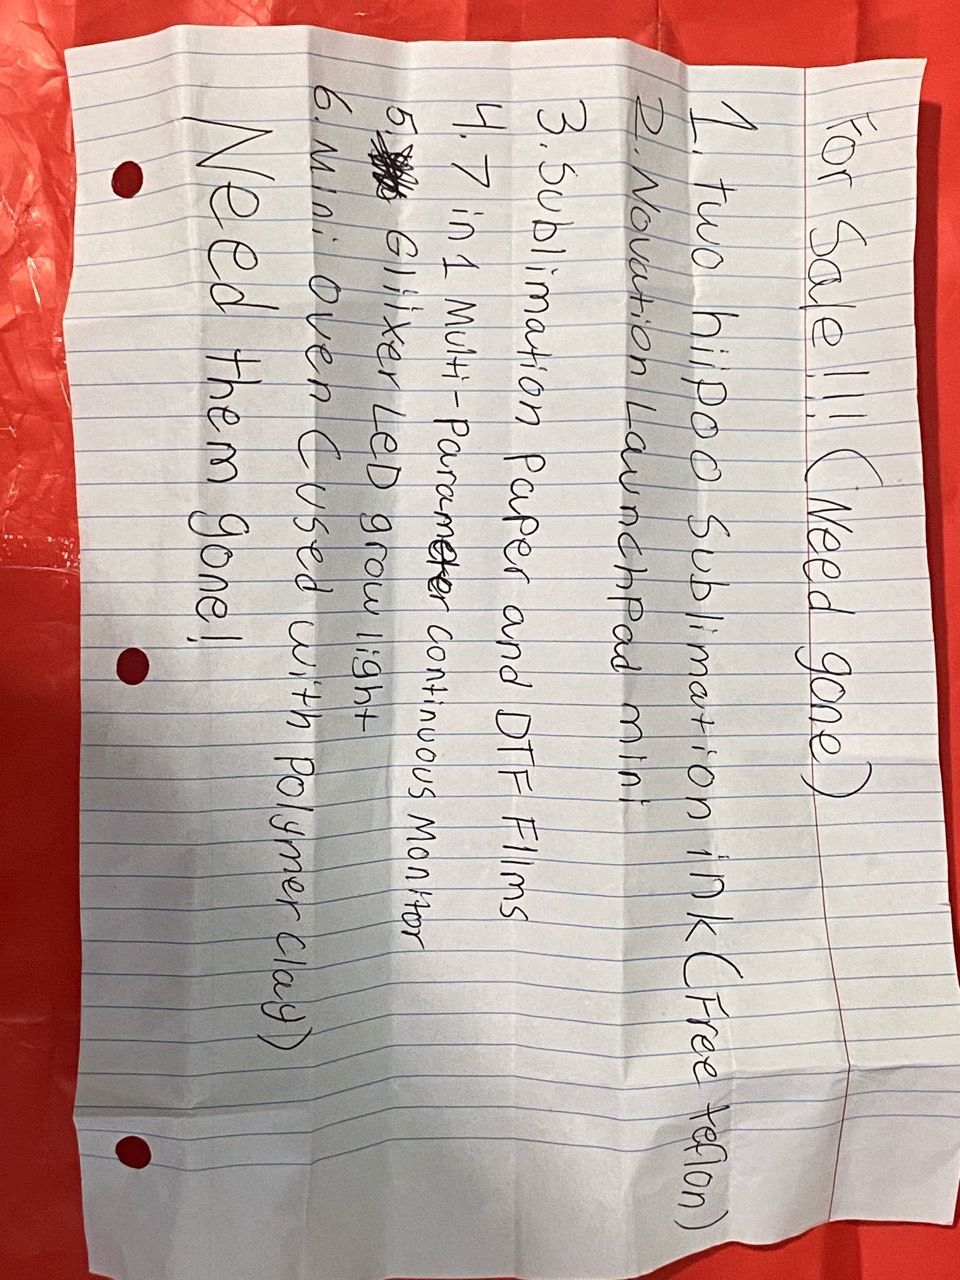 For Sale!!! (Need gone)
1. two hiipoo Sublimation ink (Free teflon)
2. Novation Launchpad mini
3. Sublimation Paper and DTF Flims
4. 7 in 1 Multi-Parameter continuous Monitor
5. Gliixer LeD grow light
6. Mini oven (used with polymer clay)
Need them gone!